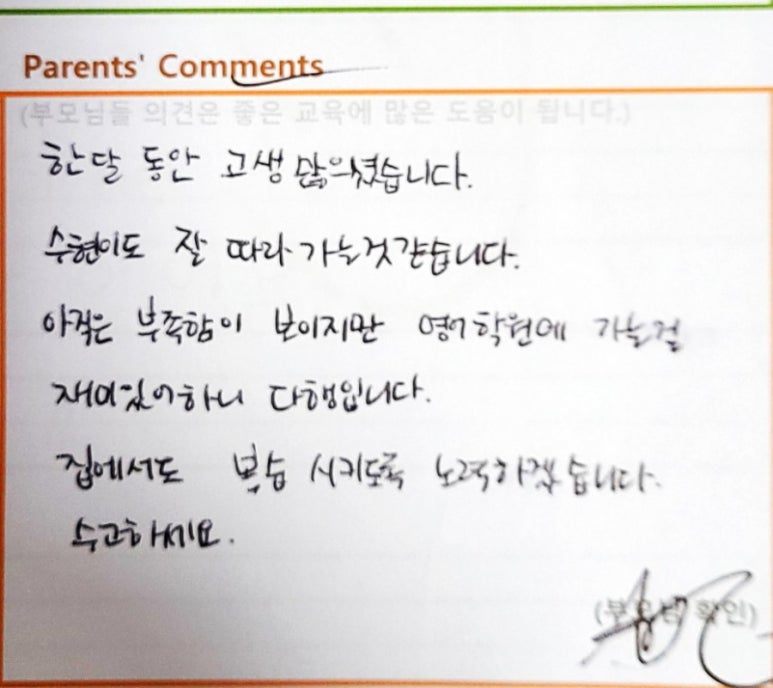 Parents' Comments
(부모님들 의견은 좋은 교육에 많은 도움이 됩니다.)
한달 동안 고생 많으셨습니다.
수현이도 잘 따라가는것같습니다.
아직은 부족함이 보이지만 영어학원에 가는걸
재미있어하니 다행입니다.
집에서도 복습 시키도록 노력하겠습니다.
수고하세요.
(부모님 확인)